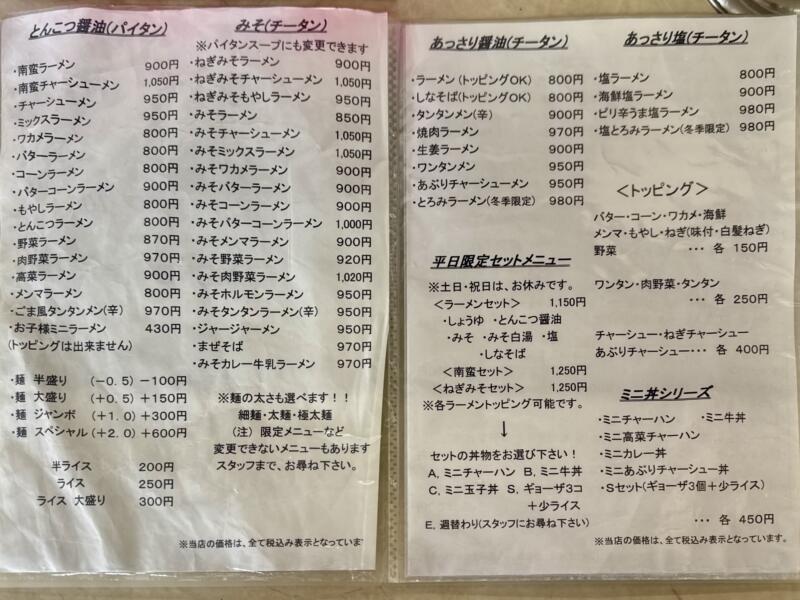 とんこつ醤油(パイタン)
・南蛮ラーメン 900円
・南蛮チャーシューメン 1,050円
・チャーシューメン 950円
・ミックスラーメン 950円
・ワカメラーメン 800円
・バターラーメン 800円
・コーンラーメン 800円
・バターコーンラーメン 900円
・もやしラーメン 800円
・とんこつラーメン 800円
・野菜ラーメン 870円
・肉野菜ラーメン 970円
・高菜ラーメン 900円
・メンマラーメン 800円
・ごま風タンタンメン(辛) 970円
・お子様ミニラーメン 430円
(トッピングは出来ません)
・麺 半盛り (-0.5) -100円
・麺 大盛り (+0.5) +150円
・麺 ジャンボ (+1.0) +300円
・麺 スペシャル (+2.0) +600円
半ライス 200円
ライス 250円
ライス 大盛り 300円
みそ(チータン)
※パイタンスープにも変更できます
・ねぎみそラーメン 900円
・ねぎみそチャーシューメン 1,050円
・ねぎみそもやしラーメン 950円
・みそラーメン 850円
・みそチャーシューメン 1,050円
・みそミックスラーメン 1,050円
・みそワカメラーメン 900円
・みそバターラーメン 900円
・みそコーンラーメン 900円
・みそバターコーンラーメン 1,000円
・みそメンマラーメン 900円
・みそ野菜ラーメン 920円
・みそ肉野菜ラーメン 1,020円
・みそホルモンラーメン 950円
・みそタンタンラーメン(辛) 950円
・ジャージャーメン 950円
・まぜそば 970円
・みそカレー牛乳ラーメン 970円
※麺の太さも選べます!!
細麺・太麺・極太麺
(注) 限定メニューなど
変更できないメニューもあります
スタッフまで、お尋ね下さい。
※当店の価格は、全て税込み表示となっていま
あっさり醤油(チータン)
・ラーメン (トッピングOK) 800円
・しなそば(トッピングOK) 800円
・タンタンメン(辛) 900円
・焼肉ラーメン 970円
・生姜ラーメン 900円
・ワンタンメン 950円
・あぶりチャーシューメン 950円
・とろみラーメン(冬季限定) 980円
平日限定セットメニュー
※土日・祝日は、お休みです。
<ラーメンセット> 1,150円
・しょうゆ ・とんこつ醤油
・みそ ・みそ白湯 ・塩
・しなそば
<南蛮セット> 1,250円
<ねぎみそセット> 1,250円
※各ラーメントッピング可能です。
↓
セットの丼物をお選び下さい!
A, ミニチャーハン B, ミニ牛丼
C, ミニ玉子丼 S, ギョーザ3コ
+少ライス
E, 週替わり(スタッフにお尋ね下さい)
あっさり塩(チータン)
・塩ラーメン 800円
・海鮮塩ラーメン 900円
・ピリ辛うま塩ラーメン 980円
・塩とろみラーメン(冬季限定) 980円
<トッピング>
バター・コーン・ワカメ・海鮮
メンマ・もやし・ねぎ(味付・白髪ねぎ)
野菜 ・・・ 各 150円
ワンタン・肉野菜・タンタン
・・・ 各 250円
チャーシュー・ねぎチャーシュー
あぶりチャーシュー・・・ 各 400円
ミニ丼シリーズ
・ミニチャーハン ・ミニ牛丼
・ミニ高菜チャーハン
・ミニカレー丼
・ミニあぶりチャーシュー丼
・Sセット(ギョーザ3個+少ライス)
・・・ 各 450円
※当店の価格は、全て税込み表示となっています。